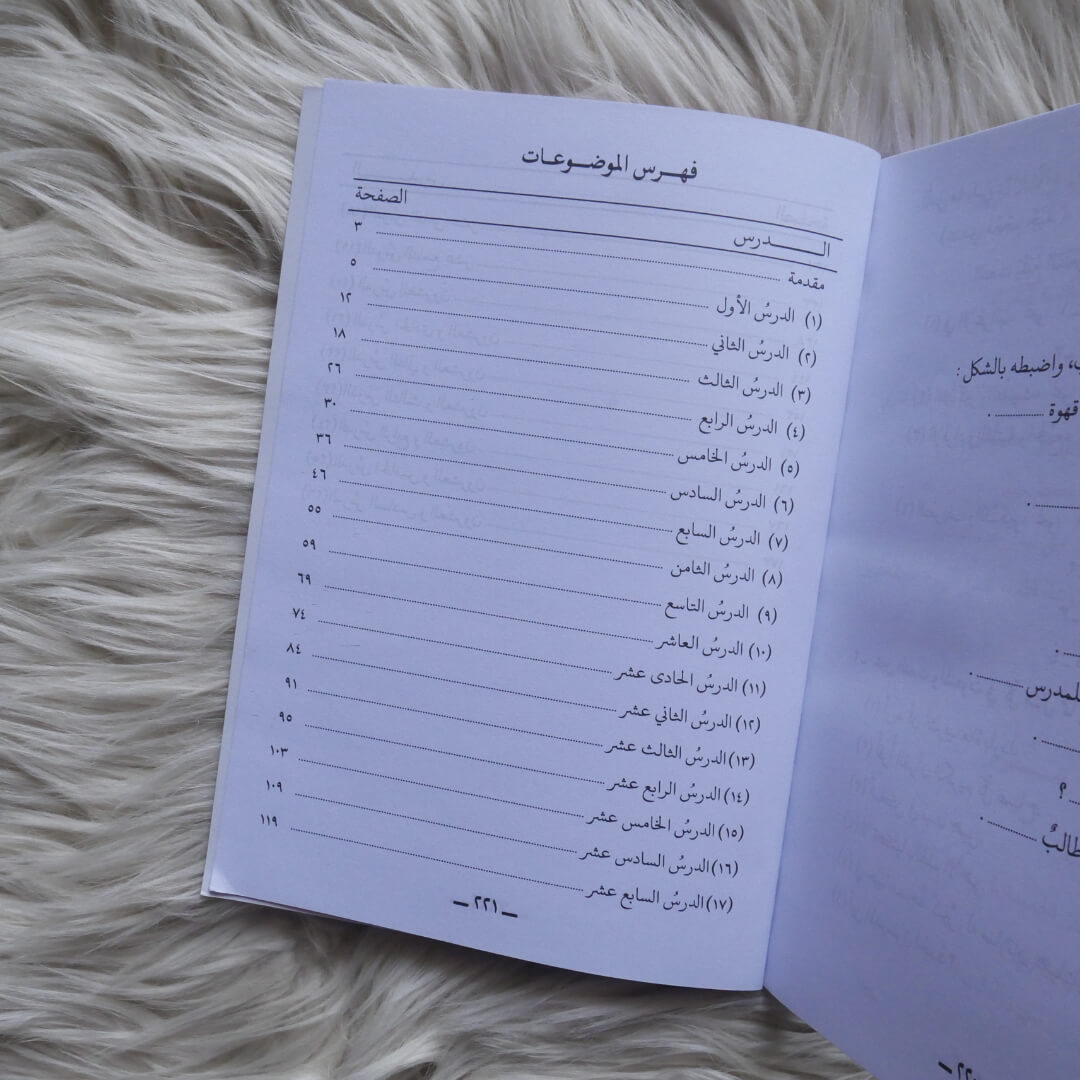 فهرس الموضوعات
الدرس الصفحة
مقدمة ٣
(١) الدرسُ الأول ٥
(٢) الدرسُ الثاني ١٢
(٣) الدرسُ الثالث ١٨
(٤) الدرسُ الرابع ٢٦
(٥) الدرسُ الخامس ٣٠
(٦) الدرسُ السادس ٣٦
(٧) الدرسُ السابع ٤٦
(٨) الدرسُ الثامن ٥٥
(٩) الدرسُ التاسع ٥٩
(١٠) الدرسُ العاشر ٦٩
(١١) الدرسُ الحادى عشر ٧٤
(١٢) الدرسُ الثاني عشر ٨٤
(١٣) الدرسُ الثالث عشر ٩١
(١٤) الدرسُ الرابع عشر ٩٥
(١٥) الدرسُ الخامس عشر ١٠٣
(١٦) الدرسُ السادس عشر ١٠٩
(١٧) الدرسُ السابع عشر ١١٩
— ٢٢١ —
واضبطه بالشكل :
قهوة .......... .
.......... .
؟